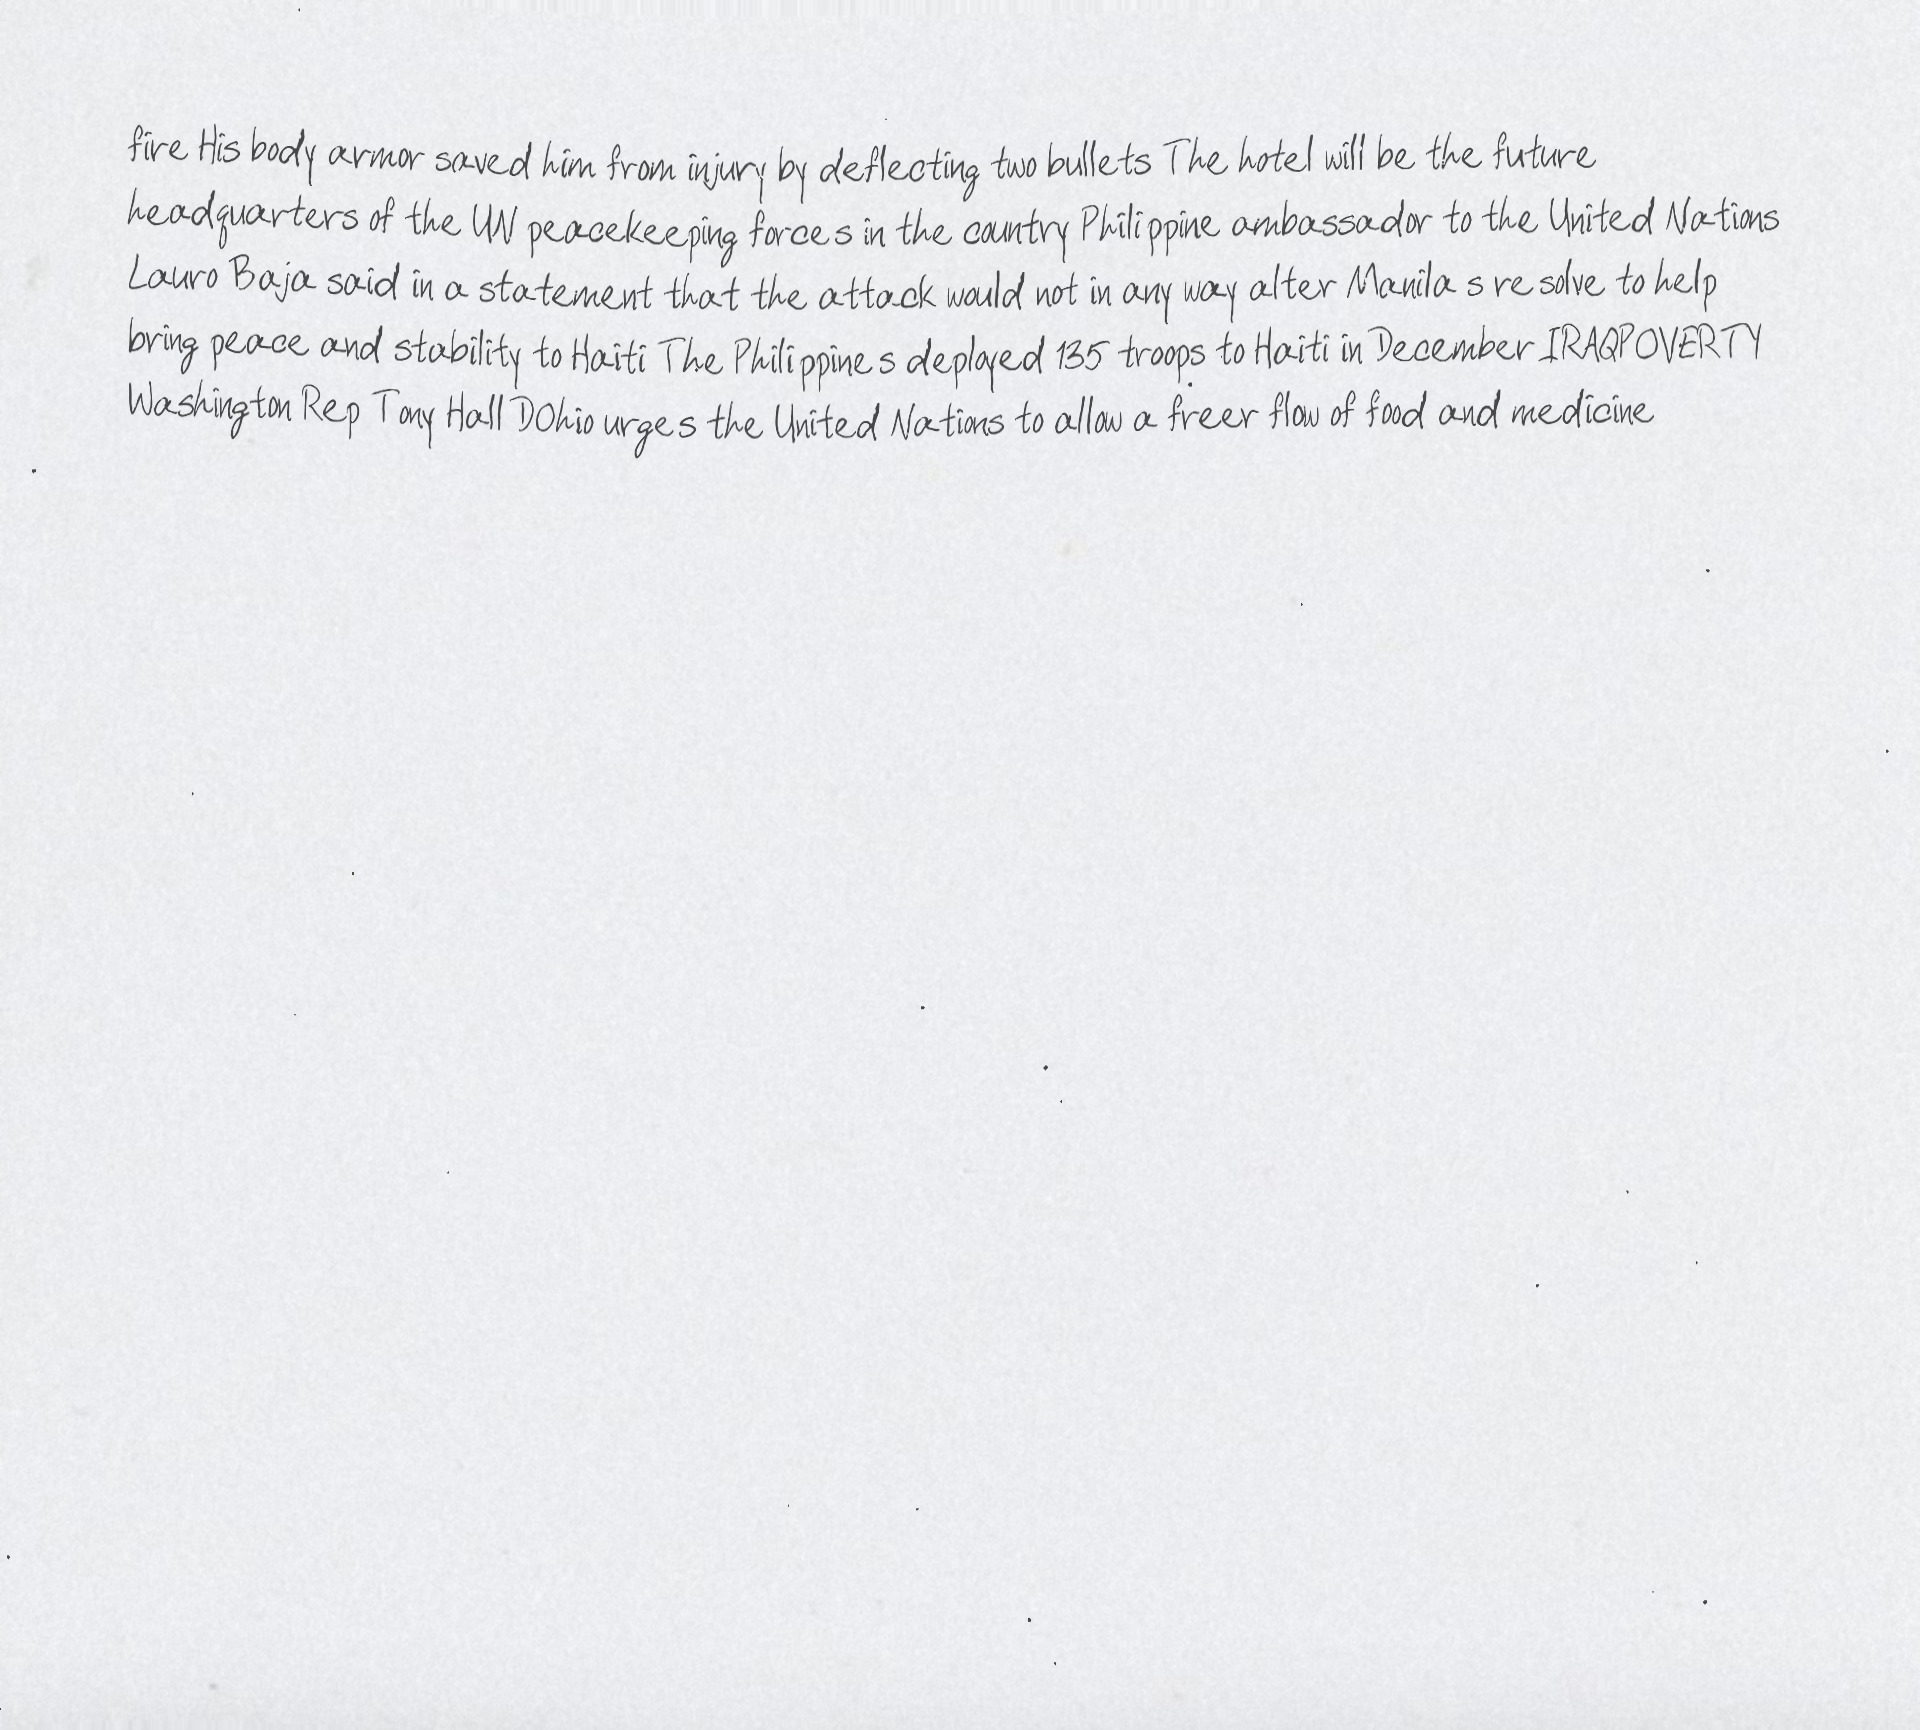 fire His body armor saved him from injury by deflecting two bullets The hotel will be the future
headquarters of the UN peacekeeping forces in the country Philippine ambassador to the United Nations
Lauro Baja said in a statement that the attack would not in any way alter Manila s resolve to help
bring peace and stability to Haiti The Philippines deployed 135 troops to Haiti in December IRAQPOVERTY
Washington Rep Tony Hall DOhio urges the United Nations to allow a freer flow of food and medicine